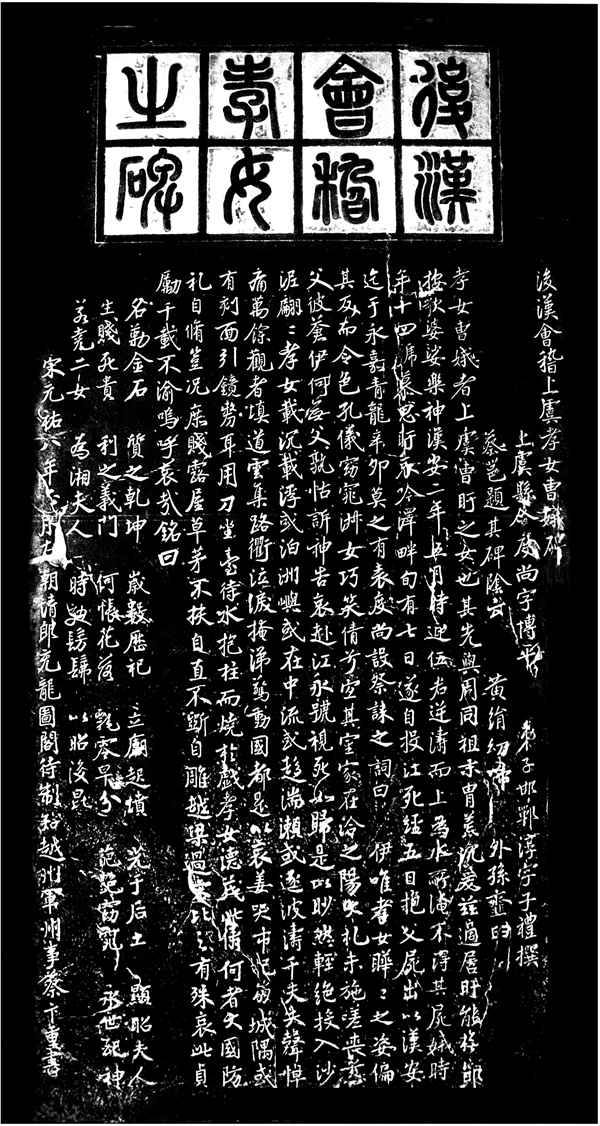 後漢
會稽
孝女
之碑
後漢會稽上虞孝女曹娥碑
上虞縣令度尚字博平 弟子邯鄲淳字子禮撰
蔡邕題其碑陰云 黃絹幼婦 外孫韲臼
孝女曹娥者上虞曹盱之女也其先與周同祖末胄荒沉爰茲適居盱能撫節
按歌婆娑樂神漢安二年五月時迎伍君逆濤而上為水所淹不得其屍娥時
年十四號慕思盱哀吟澤畔旬有七日遂自投江死經五日抱父屍出以漢安
迄于永嘉青龍辛卯莫之有表度尚設祭誄之詞曰 伊唯孝女曄〻之姿偏
其反而令色孔儀窈窕淑女巧笑倩兮宜其室家在洽之陽大礼未施嗟喪慈
父彼蒼伊何無父孰怙訴神告哀赴江永號視死如歸是以眇然輕絕投入沙
泥翩〻孝女載沉載浮或泊洲嶼或在中流或趨湍瀨或逐波濤千夫失聲悼
痛萬餘觀者填道雲集路衢泣淚掩涕驚動國都是以哀姜哭市杞崩城隅或
有剋面引鏡剺耳用刀坐臺待水抱柱而燒於戲孝女德茂此儔何者大國防
礼自脩豈況庶賤露屋草茅不扶自直不斵自雕越梁過宋比之有殊哀此貞
勵千載不渝嗚呼哀哉銘曰
名勒金石 質之乾坤 歲數歷祀 立廟起墳 光于后土 顯昭夫人
生賤死貴 利之義門 何悵花落 飄零早分 葩艷窈窕 永世配神
若堯二女 為湘夫人 時效髣髴 以昭後昆
宋元祐八年正月左朝請郎充龍圖閣待制知越州軍州事蔡卞重書